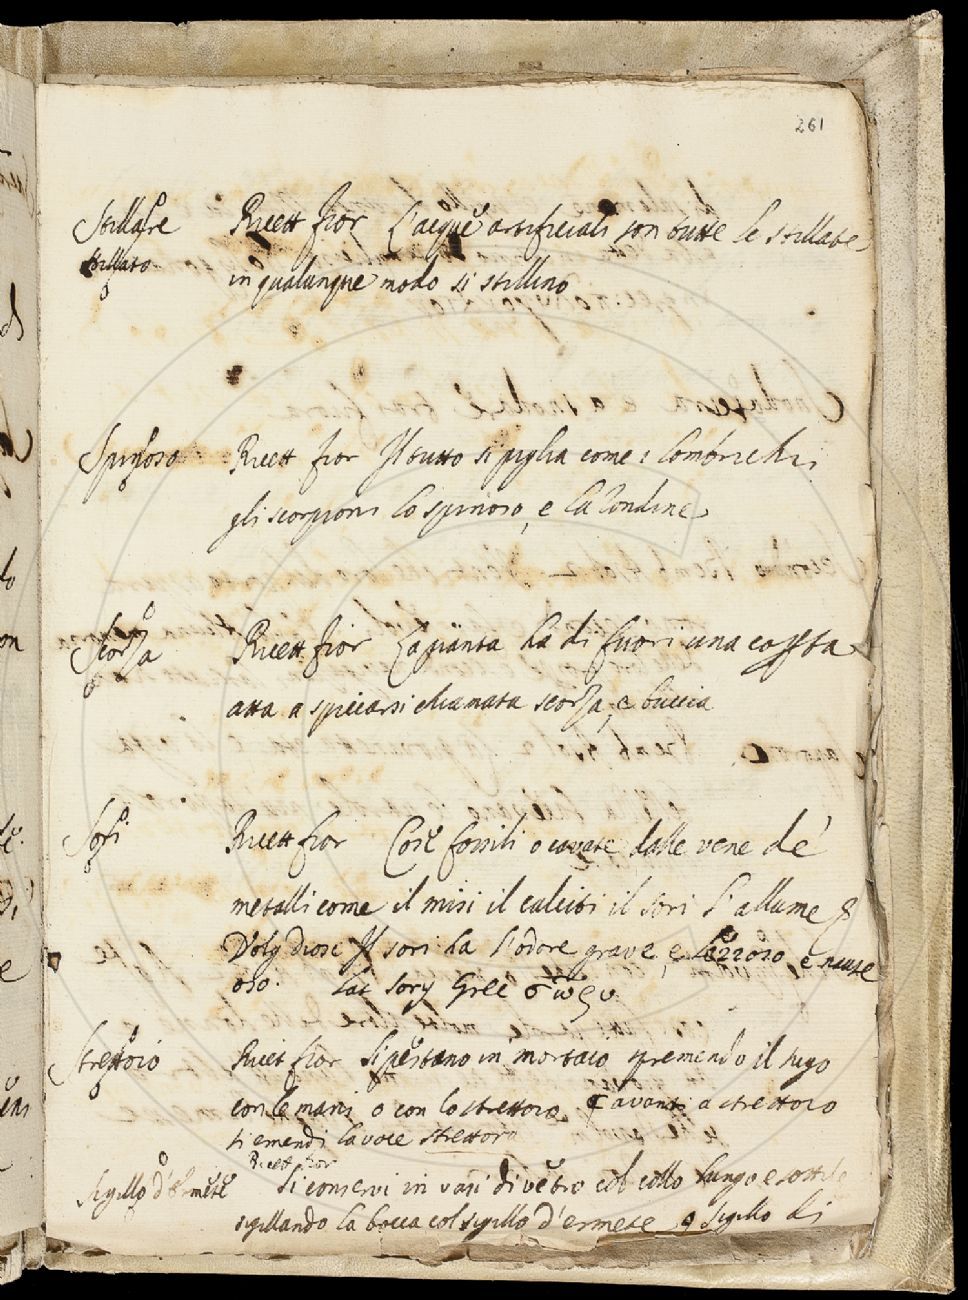 261
Stillare Ricett fior L'acque artifiziali son tutte le stillate,
stillato in qualunque modo si stillino
Spinoso Ricett fior Il tutto si piglia come i lombrichi
gli scorpioni lo spinoso, e la rondine
Scorza Ricett fior La pianta ha di fuori una costa
atta a spiccarsi chiamata scorza, e buccia
Sori Ricett fior Cose fossili o cavate dalle vene de'
metalli come il misi il calciti il sori l'allume &
Volg Diosc Il sori ha l'odore grave, e lezzoso, e nause
oso. Lat Sory Grec σῶρυ
Strettoio Ricet fior Si pestano in mortaio spremendo il sugo
con le mani o con lo strettoio avanti a strettoio
si emendi la voce strettoro
Ricett fior
Sigillo d'Ermete Si conservi in vasi di vetro col collo lungo e sottile
sigillando la bocca col sigillo d'ermete o sigillo di